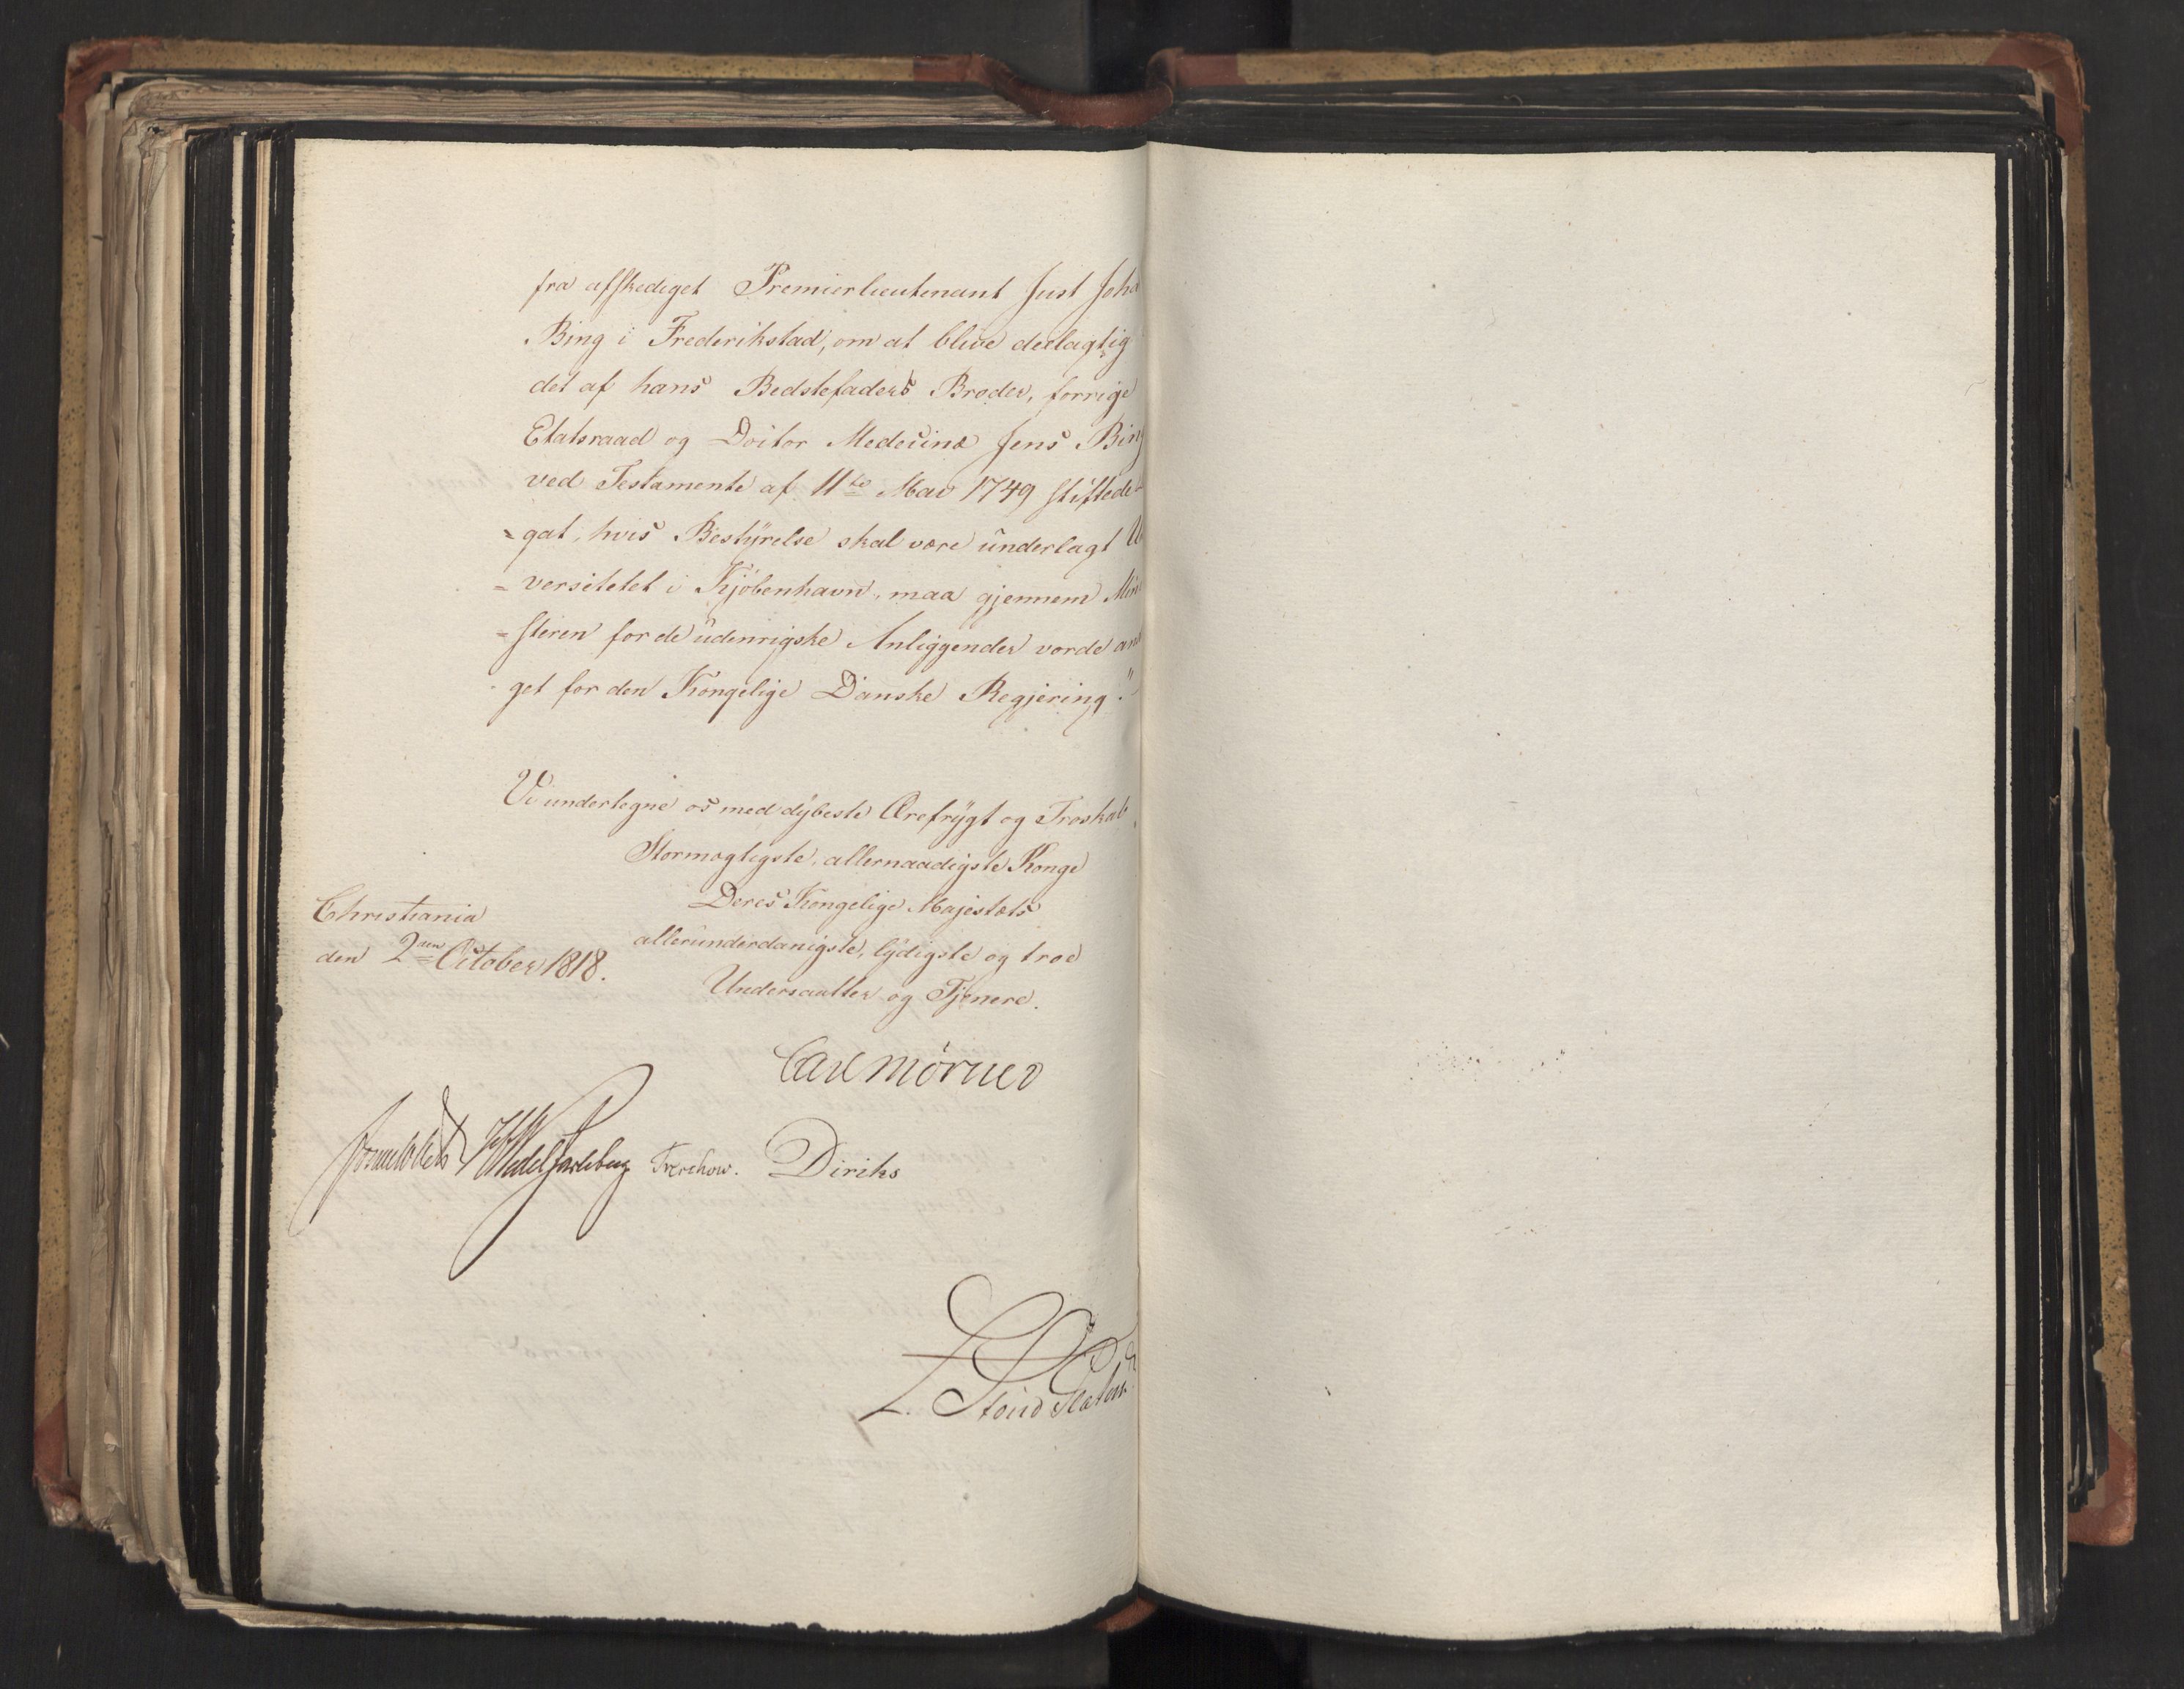 fra afskediget Premierlieutenant Just Joha
Bing i Frederikstad, om at blive deelagtig
det af hans Bedstefaders Broder, forrige
Etatsraad og Doctor Medecinæ Jens Bing
ved Testamente af 11te Mai 1749 stiftede
gat, hvis Bestÿrelse skal være underlagt U
versitetet i Kjöbenhavn, maa gjennem Mini
steren for de udenrigske Anliggender vorde an
get for den Kongelige Danske Regjering."
Vi undertegne os med dÿbeste Ærefrÿgt og Troskab
Stormægtigste, allernaadigste Konge
Deres Kongelige Majestæts
allerunderdanigste, lÿdigste og troe
Undersaatter og Tjenere.
Christiania
den 2den October 1818.
Carl Mörner
Sommerhielm HWedelJarlsberg Treschow. Diriks